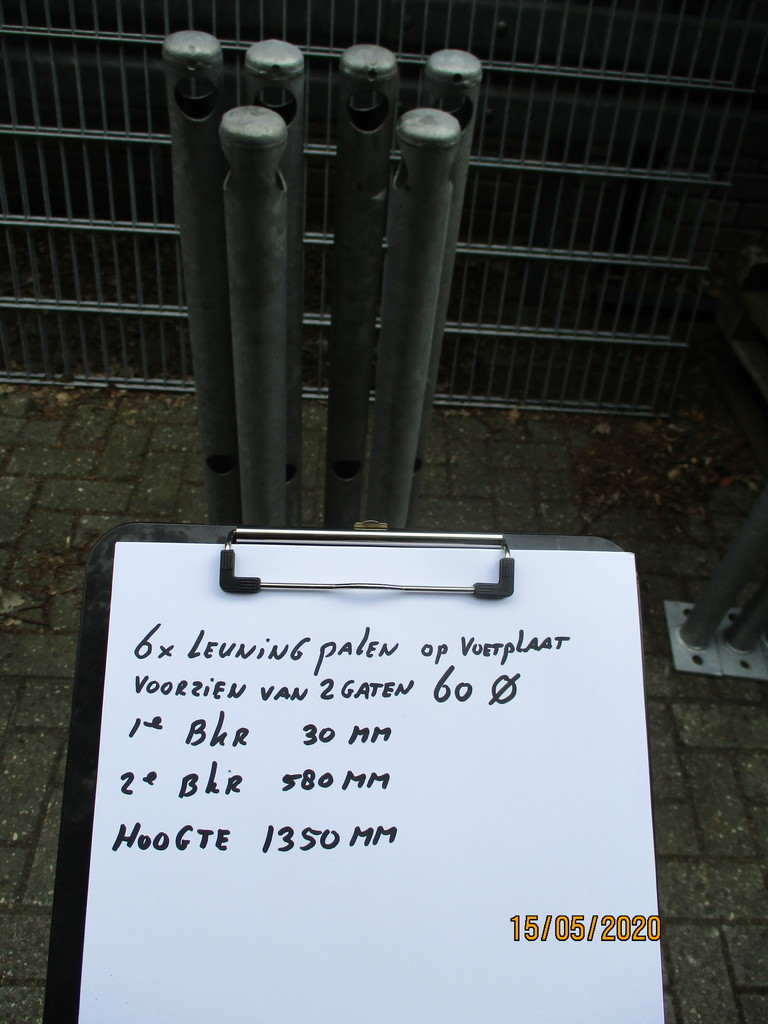 6x LEUNING palen op VOETplAAT
VOORZIEN VAN 2 GATEN 60 Ø
1e BkR 30 MM
2e BkR 580 MM
HOOGTE 1350 MM
15/05/2020